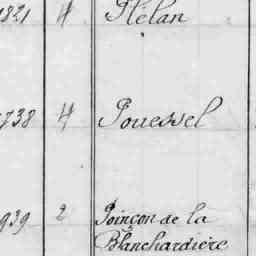 1821 4 Plélan
1738 4 Pouessel
1939 2 Poinçon de la
Blanchardière